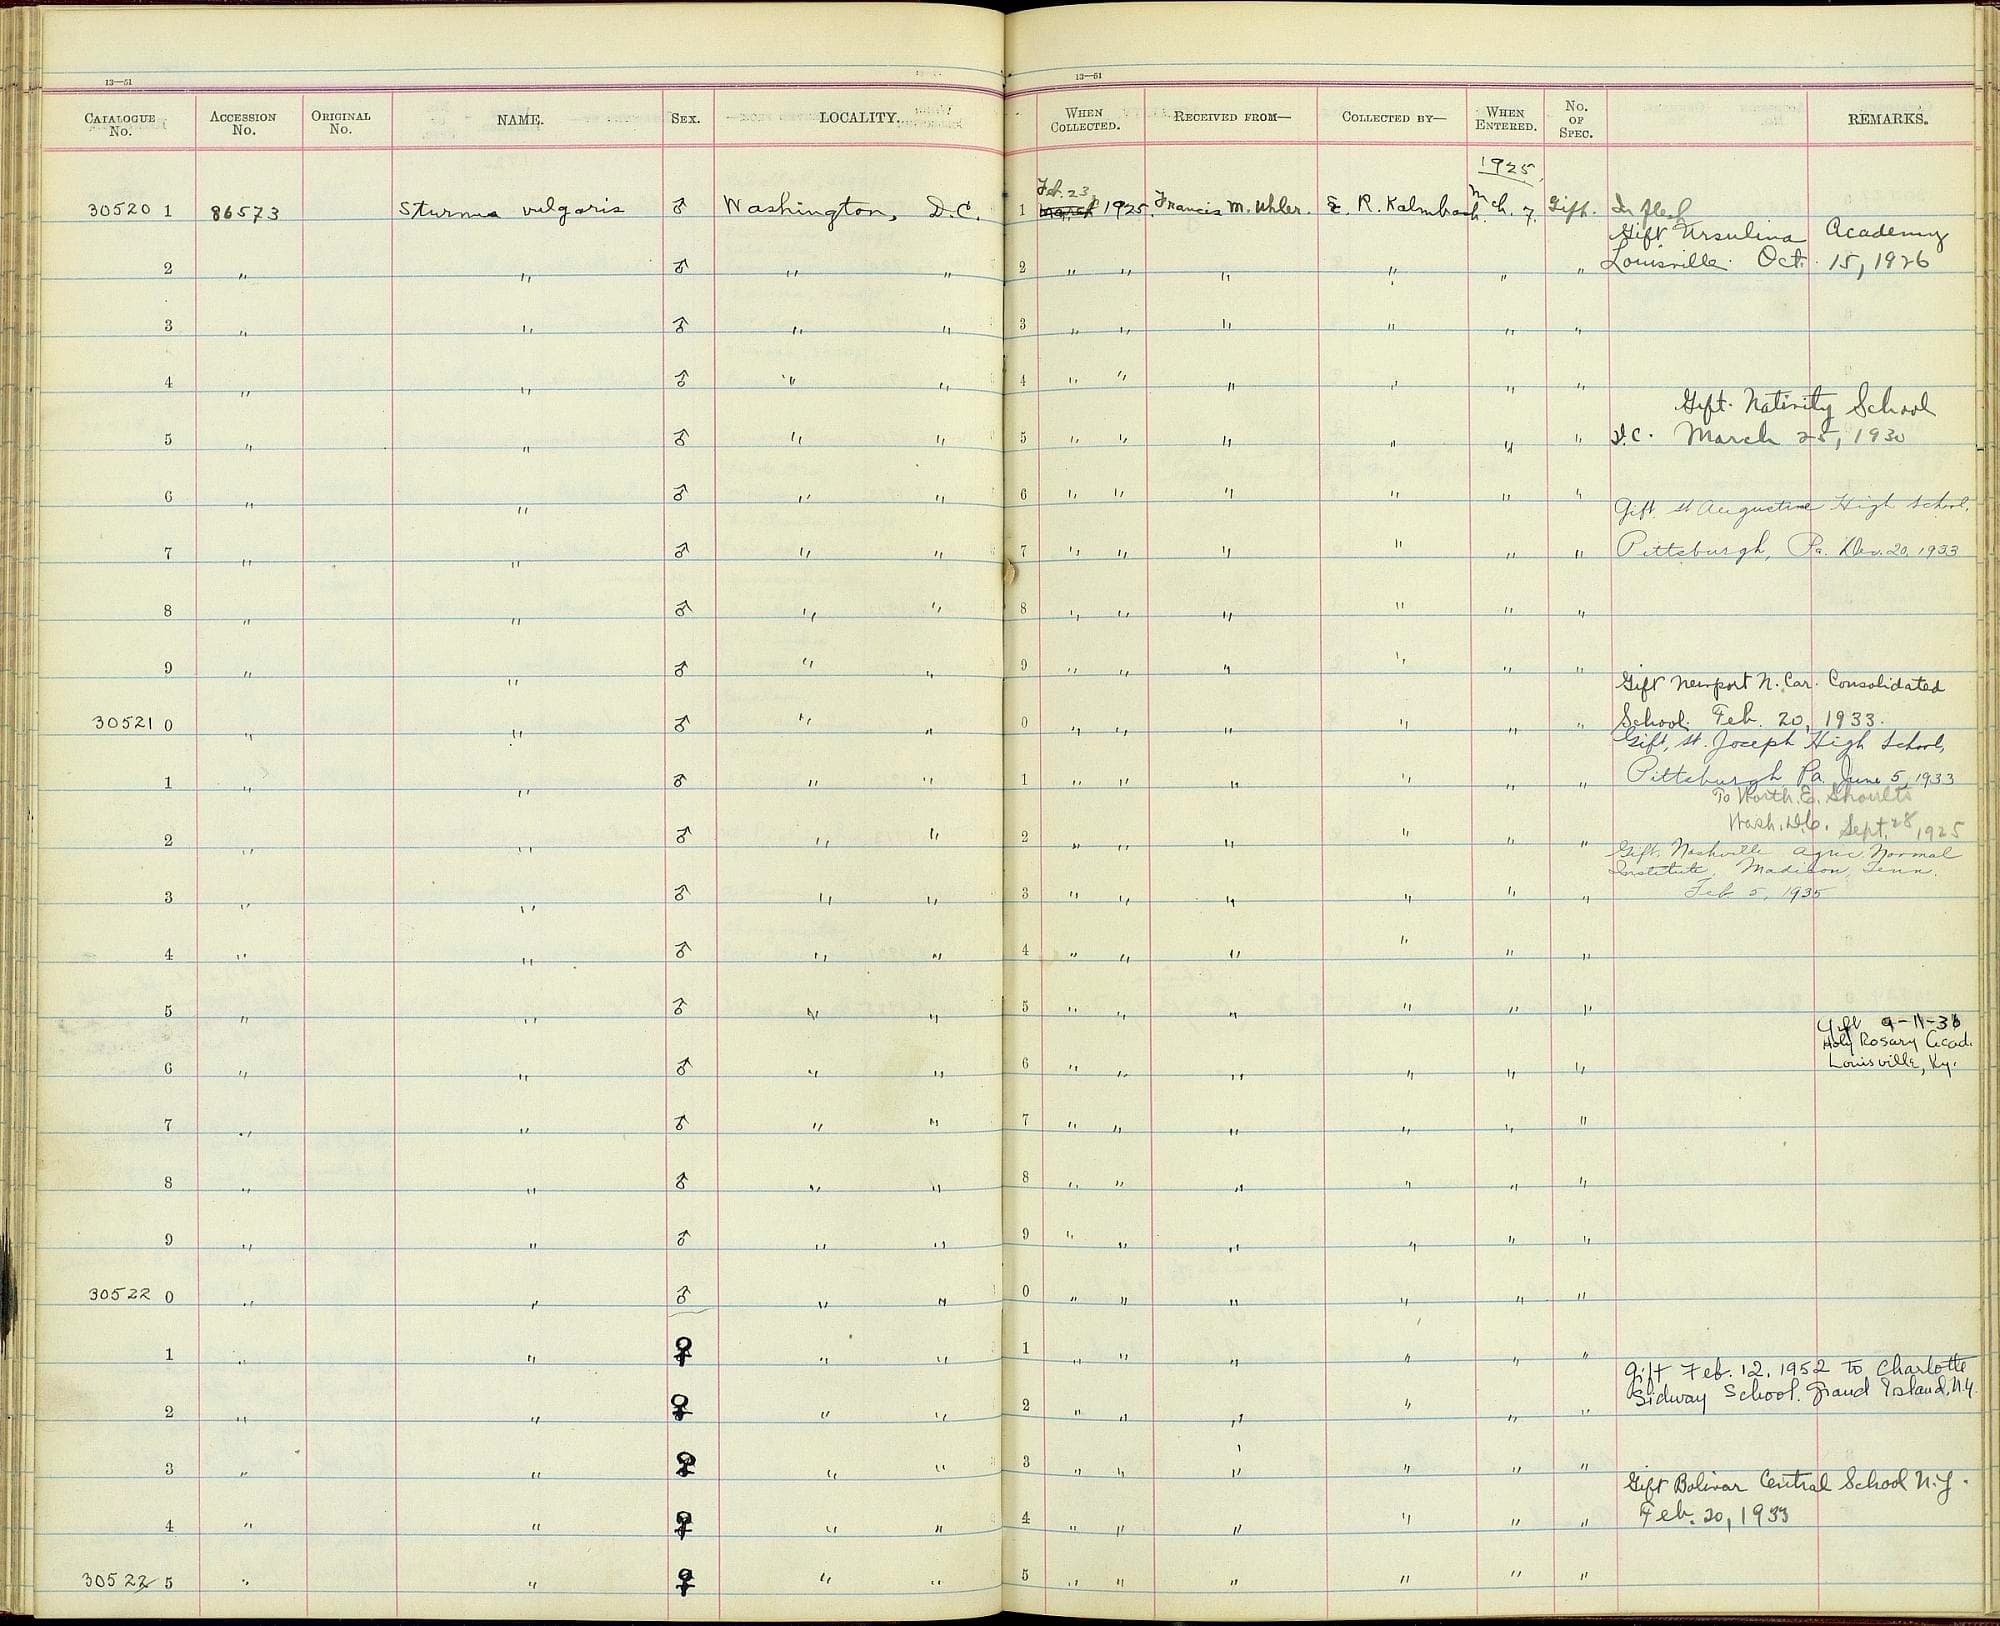 13—51 13—51
CATALOGUE No. ACCESSION No. ORIGINAL No. NAME. SEX. LOCALITY. WHEN COLLECTED. RECEIVED FROM— COLLECTED BY— WHEN ENTERED. No. OF SPEC. REMARKS.
1925
Feb. 23
30520 1 86573 Sturnus vulgaris ♂ Washington, D.C. 1 March 1925. Francis M. Uhler. E. R. Kalmbach. Mch. 7. Gift. In flesh
Gift Ursulina Academy
2 " " ♂ " " 2 " " " " " " Louisville. Oct. 15, 1926
3 " " ♂ " " 3 " " " " " "
4 " " ♂ " " 4 " " " " " "
Gift. Nativity School
5 " " ♂ " " 5 " " " " " " D.C. March 25, 1930
6 " " ♂ " " 6 " " " " " "
Gift St Augustine High School,
7 " " ♂ " " 7 " " " " " " Pittsburgh, Pa. Dec. 20, 1933
8 " " ♂ " " 8 " " " " " "
9 " " ♂ " " 9 " " " " " "
Gift Newport N. Car. Consolidated
30521 0 " " ♂ " " 0 " " " " " " School. Feb. 20, 1933.
Gift, St. Joseph High School,
1 " " ♂ " " 1 " " " " " " Pittsburgh Pa. June 5, 1933
To Worth. E. Shoults
2 " " ♂ " " 2 " " " " " " Wash. D.C. Sept. 28, 1925
Gift. Nashville Agric. Normal
Institute, Madison, Tenn.
3 " " ♂ " " 3 " " " " " " Feb 5, 1935
4 " " ♂ " " 4 " " " " " "
5 " " ♂ " " 5 " " " " " "
Gift 9-11-36
Holy Rosary Acad.
6 " " ♂ " " 6 " " " " " " Louisville, Ky.
7 " " ♂ " " 7 " " " " " "
8 " " ♂ " " 8 " " " " " "
9 " " ♂ " " 9 " " " " " "
30522 0 " " ♂ " " 0 " " " " " "
1 " " ♀ " " 1 " " " " " "
Gift Feb. 12, 1952 To Charlotte
2 " " ♀ " " 2 " " " " " " Sidway School. Grand Island, N.Y.
3 " " ♀ " " 3 " " " " " "
Gift Bolivar Central School N.Y.
4 " " ♀ " " 4 " " " " " " Feb. 20, 1933
30522 5 " " ♀ " " 5 " " " " " "